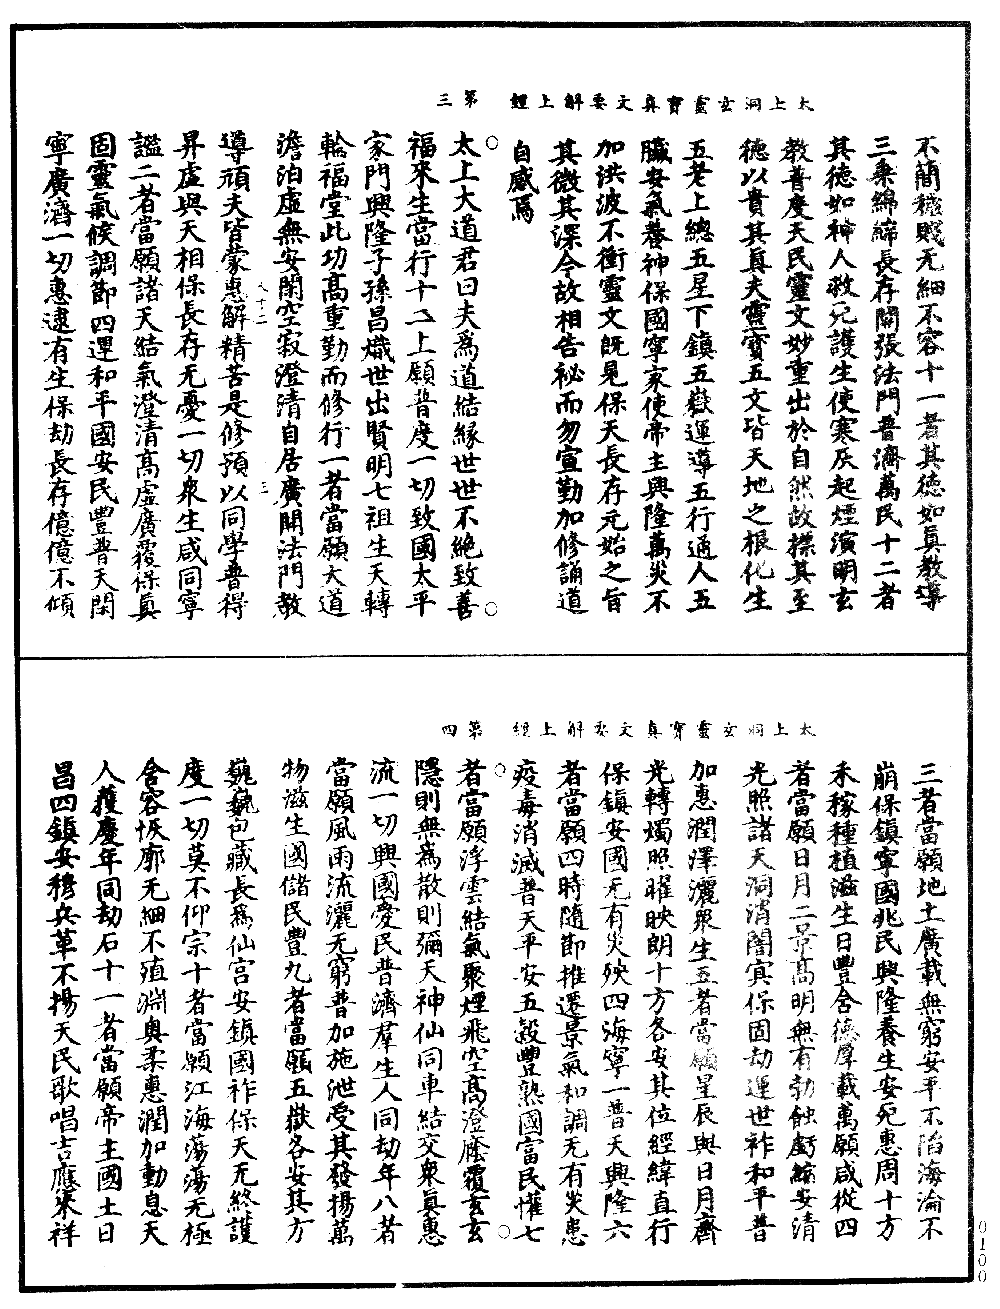 太上洞玄靈寶真文要解上經　第三
不簡穢賤无細不容十一者其德如真教導
三乘綿綿長存開張法門普濟萬民十二者
其德如神人救死護生使寒灰起煙演明玄
教普度天民靈文妙重出於自然故標其至
德以貴其真夫靈寶五文皆天地之根化生
五老上總五星下鎮五嶽運導五行通人五
臟安氣養神保國寧家使帝主興隆萬災不
加洪波不衝靈文既見保天長存元始之旨
其微其深今故相告祕而勿宣勤加修誦道
自感焉
太上大道君曰夫為道結緣世世不絶致善
福來生當行十二上願普度一切致國太平
家門興隆子孫昌熾世出賢明七祖生天轉
輪福堂此功高重勤而修行一者當願大道
澹泊虛無安閑空寂澄清自居廣開法門教
導頑夫皆蒙惠解精苦是修預以同學普得
昇虛與天相保長存无憂一切衆生咸同寧
謐二者當願諸天結氣澄清高虛廣覆保真
固靈氣候調節四運和平國安民豐普天閑
寧廣濟一切惠逮有生保劫長存億億不傾
太上洞玄靈寶真文要解上經　第四
三者當願地土廣載無窮安平不陷海淪不
崩保鎮寧國兆民興隆養生安死惠周十方
禾稼種植滋生日豐含德厚載萬願咸從四
者當願日月二景高明無有勃蝕虧縮安清
光照諸天洞消闇冥保固劫運世祚和平普
加惠潤澤灑衆生五者當願星辰與日月齊
光轉燭照曜映朗十方各安其位經緯直行
保鎮安國无有災殃四海寧一普天興隆六
者當願四時隨節推遷景氣和調无有災患
疫毒消滅普天平安五穀豐熟國富民懽七
者當願浮雲結氣聚煙飛空高澄麽覆玄玄
隱則無為散則彌天神仙同車結交衆真惠
流一切興國愛民普濟羣生人同劫年八者
當願風雨流灑无窮普加施泄受其發揚萬
物滋生國儲民豐九者當願五嶽各安其方
巍巍包藏長為仙宮安鎮國祚保天无終護
度一切莫不仰宗十者當願江海蕩蕩无極
含容恢廓无細不殖淵奧柔惠潤加動息天
人獲慶年同劫石十一者當願帝主國土日
昌四鎮安穆兵革不揚天民歌唱吉應來祥
0100